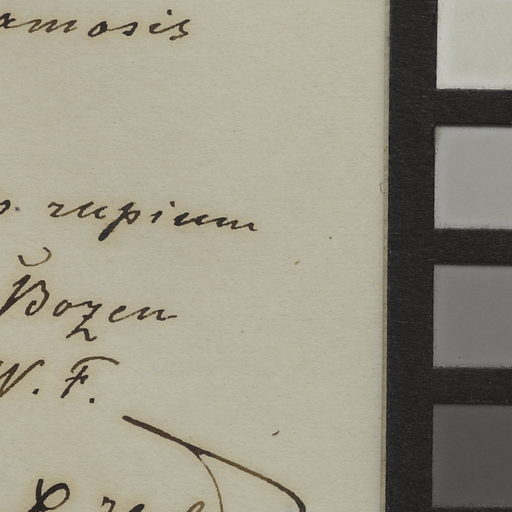 amosis
p. rupium
Bozen
W. F.